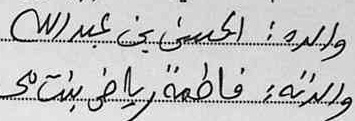 والده: الحسني بن عبد الله
والدته: فاطمة رياض بنت